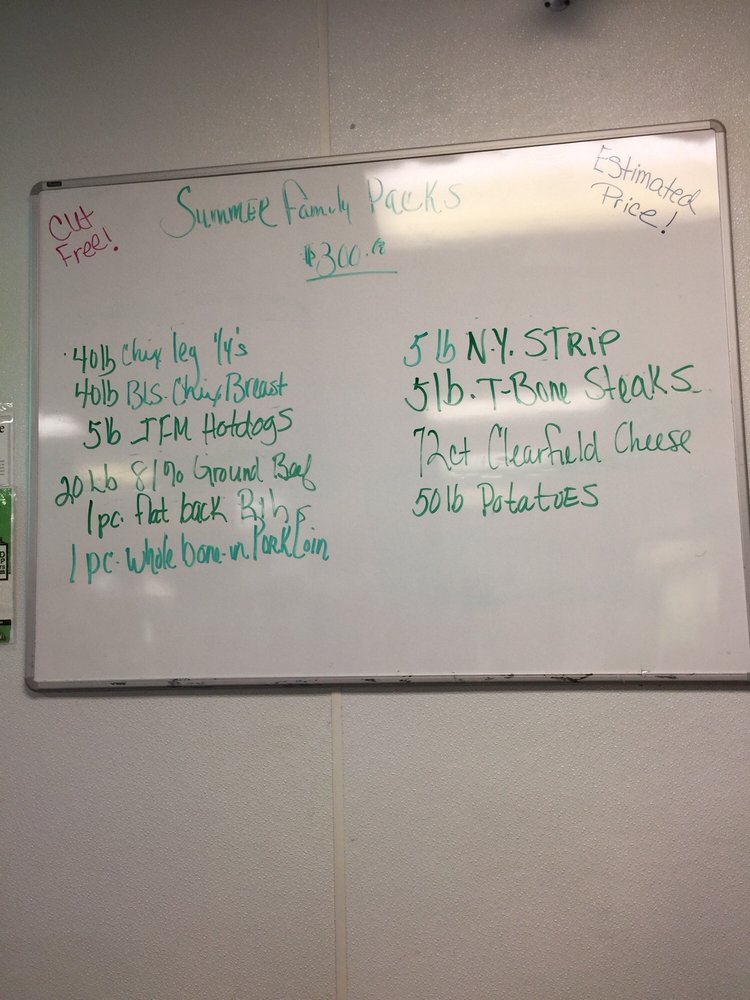 Summer Family Packs
$300.00
Cut
Free!
Estimated
Price!
40lb Chix leg 1/4's
40lb BLS. Chix Breast
5lb JTM Hotdogs
20 Lb 81% Ground Beef
1 pc. flat back Ribs
1 pc. whole bone-in Pork Loin
5 lb N.Y. STRIP
5 lb. T-Bone Steaks
72ct Clearfield Cheese
50 lb Potatoes